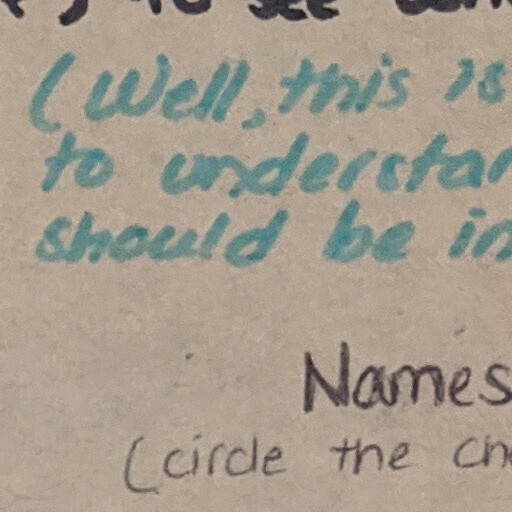 to see
(Well, this is
to understan
should be in
Names
(circle the ch